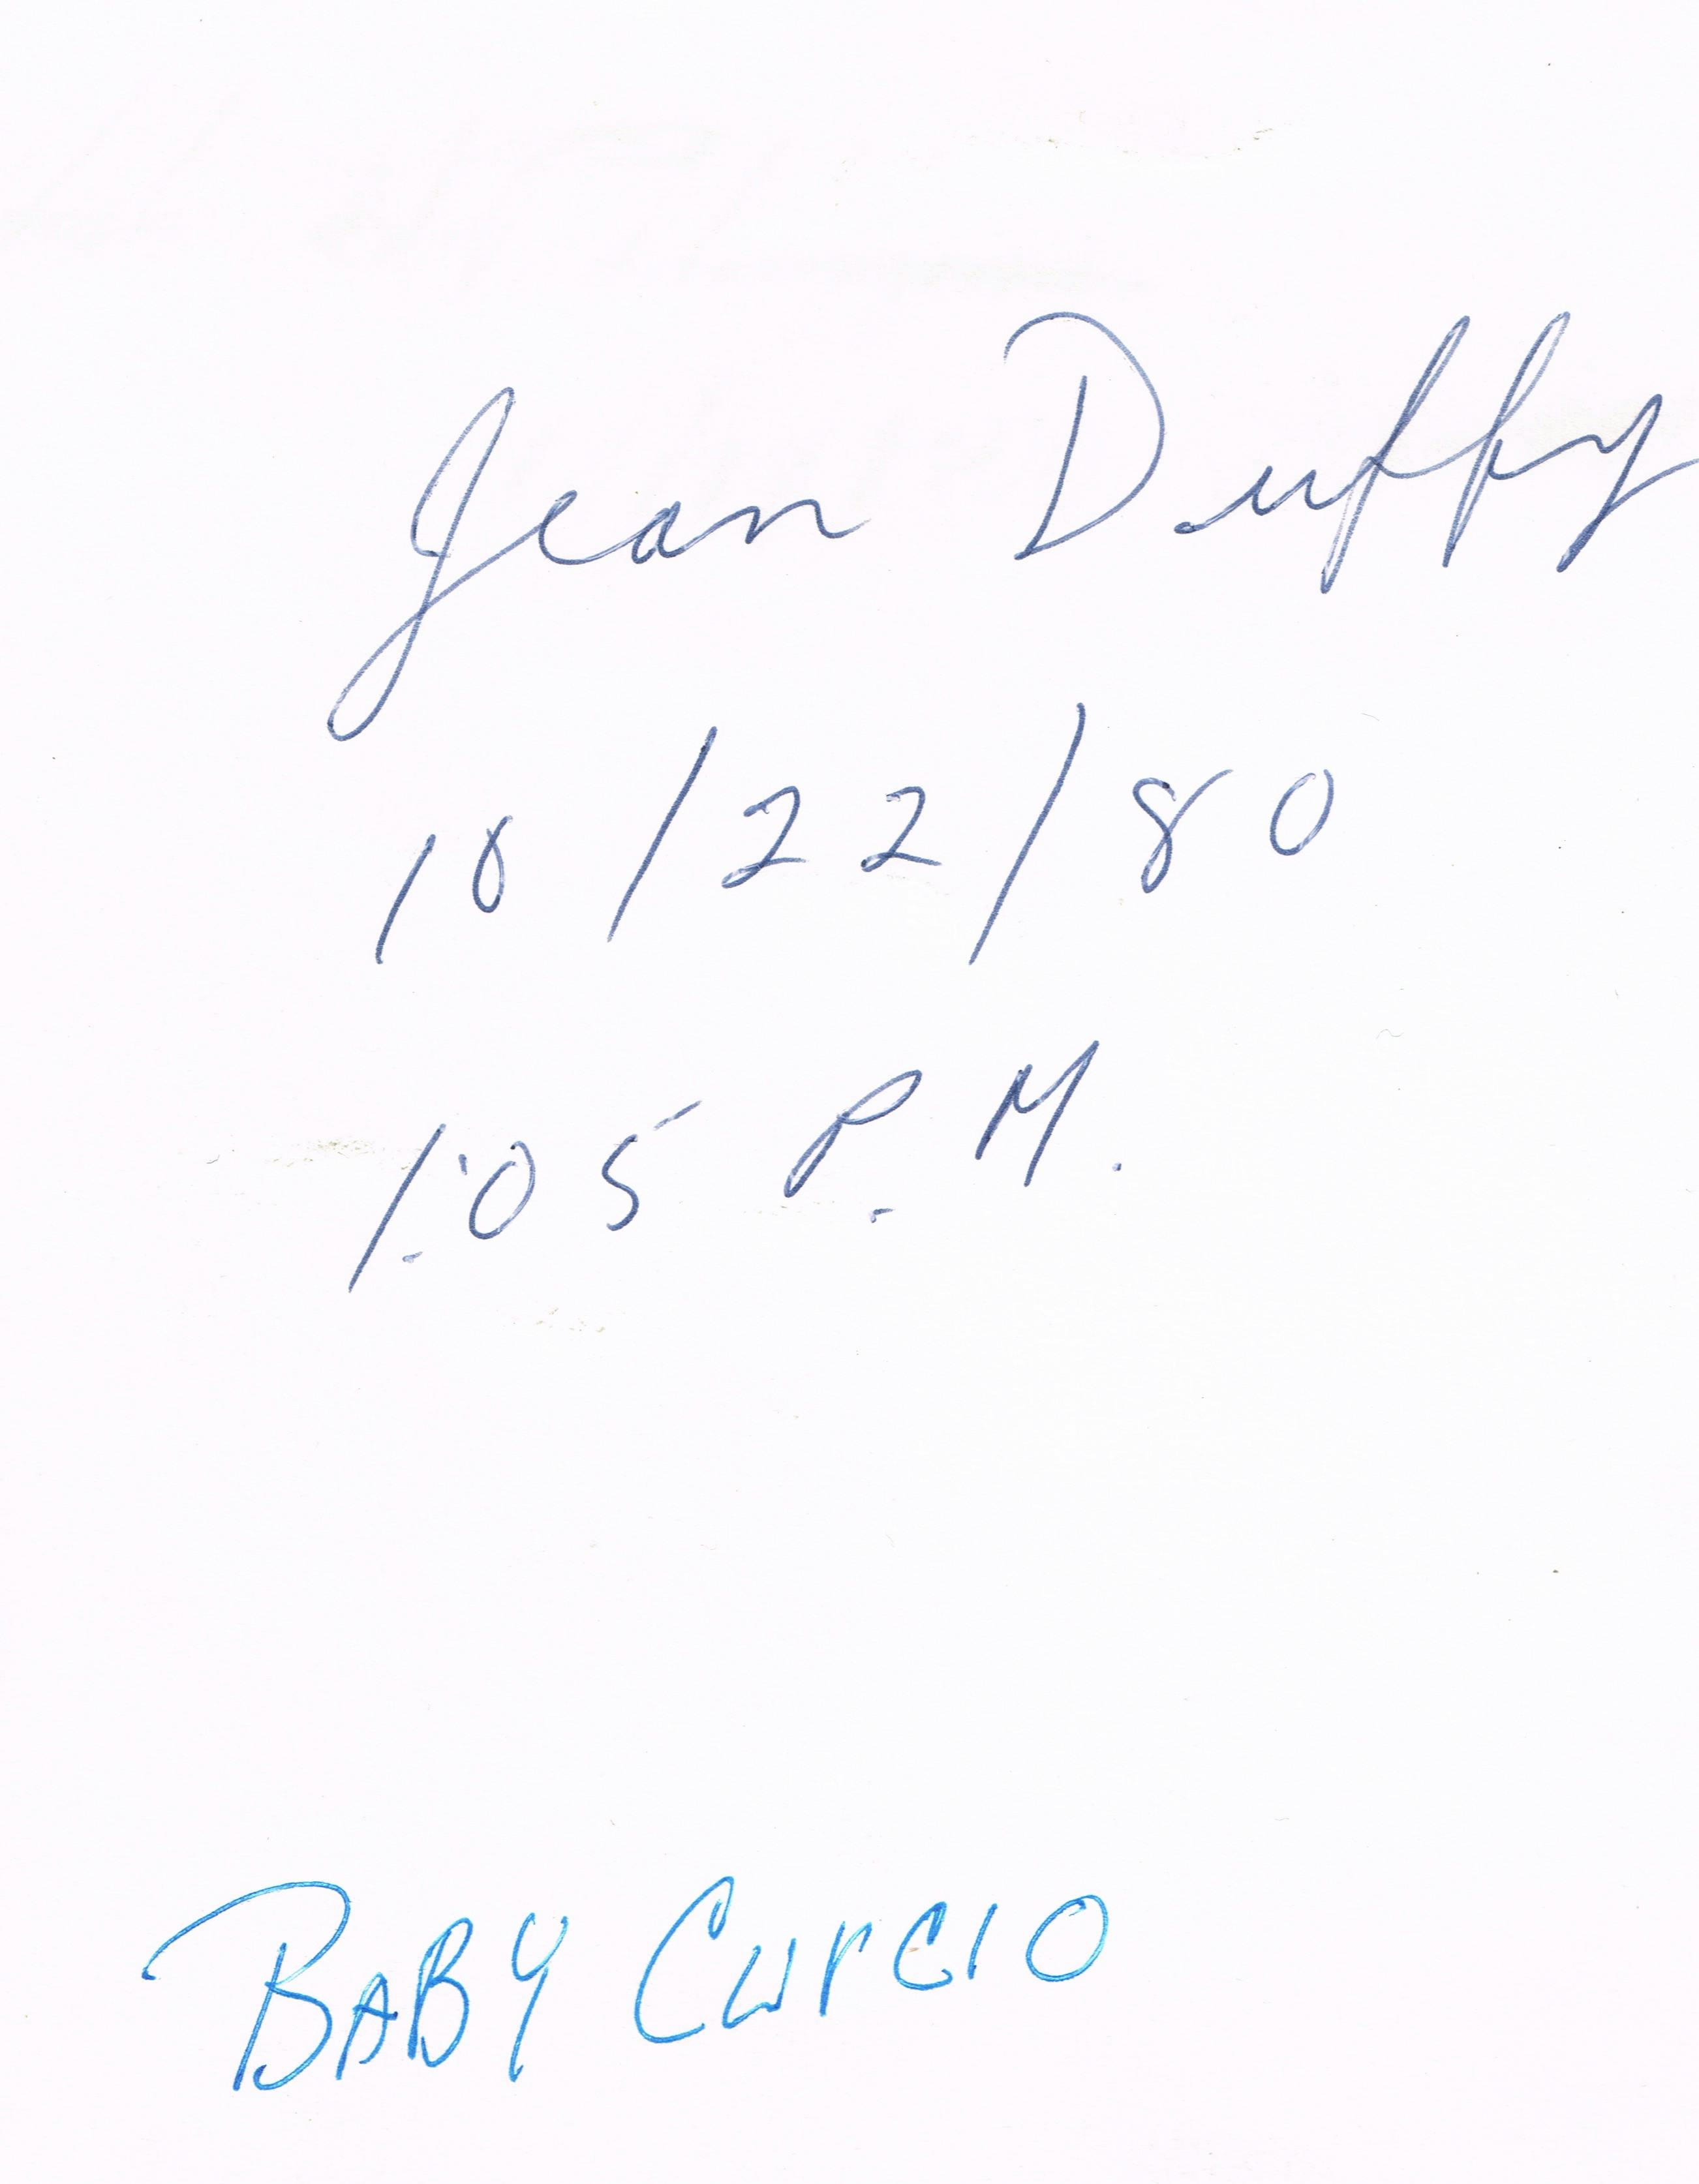 Jean Duffy
10/22/80
1:05 P.M.
BABY CURCIO